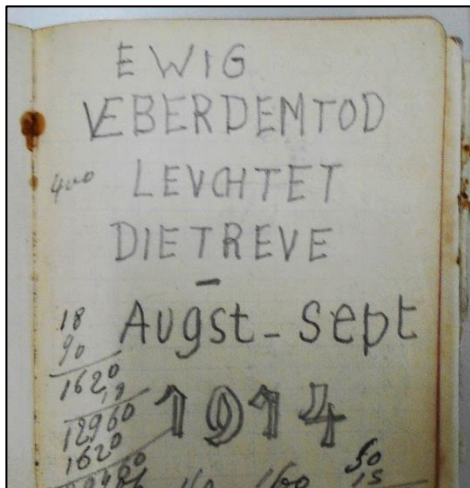 EWIG
VEBERDEMTOD
400 LEVCHTET
DIETREVE
-
Augst - Sept
18
90
1620
1914
12960
1620
160 50
15